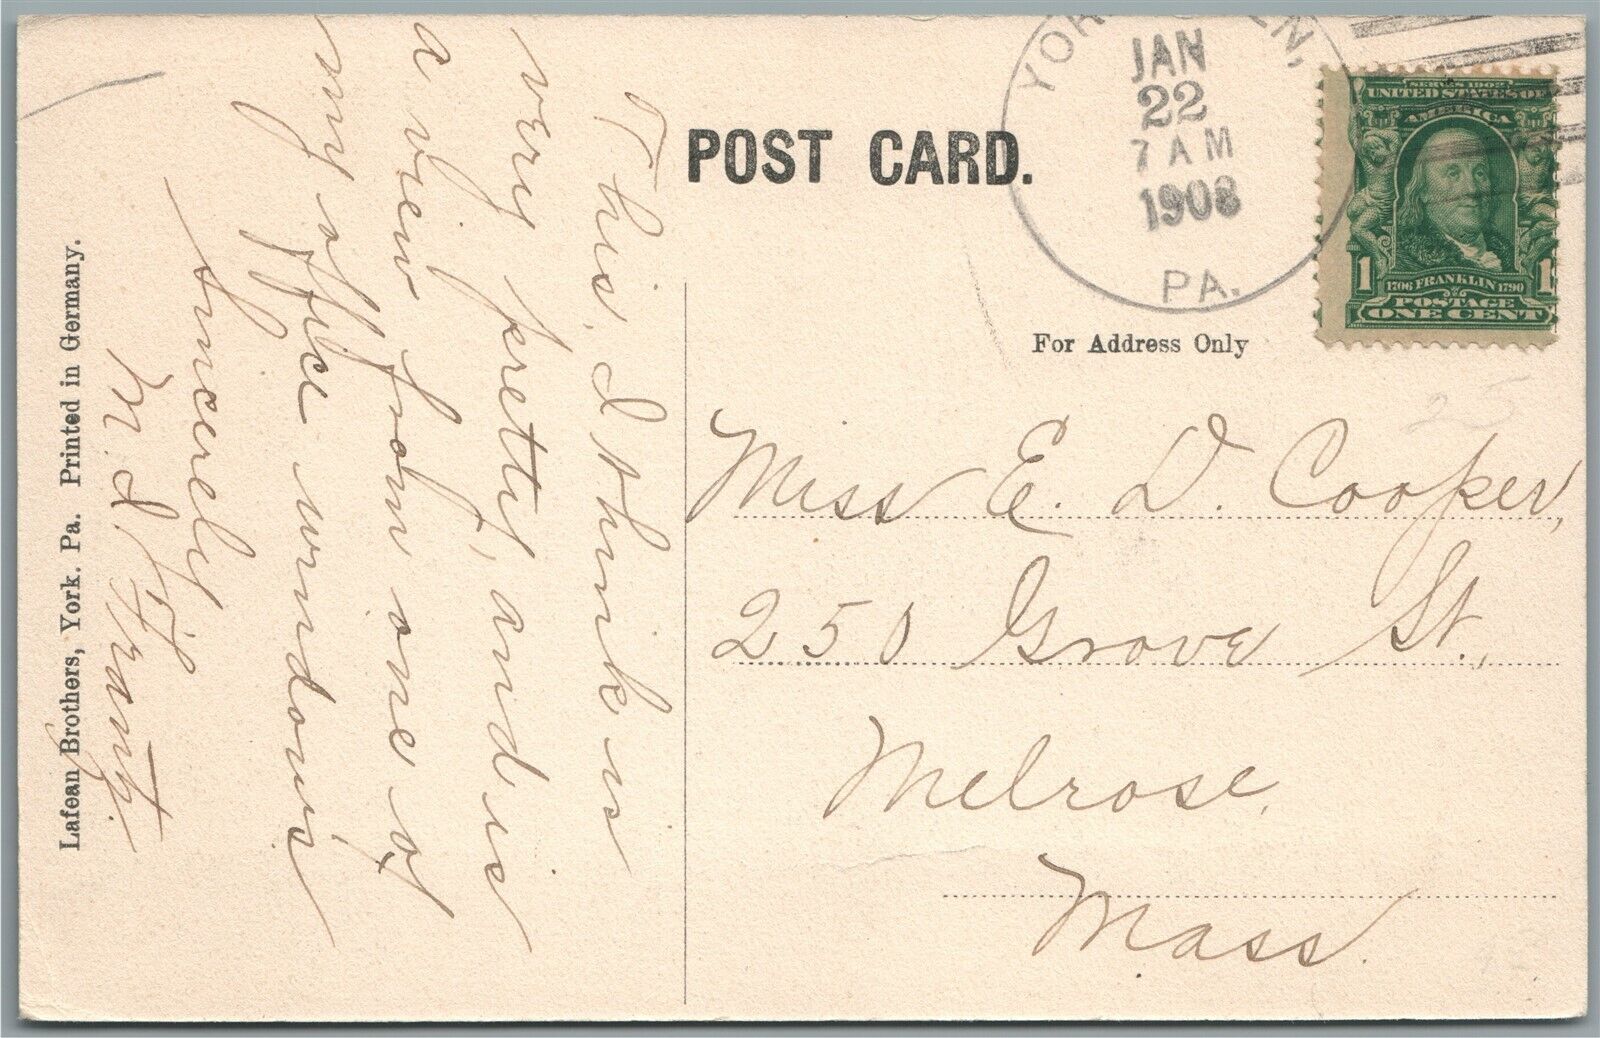 POST CARD.
JAN
22
7 A M
1908
PA.
SERIES 1902
UNITED STATES OF
AMERICA
1706 FRANKLIN 1790
1 1
POSTAGE
ONE CENT
For Address Only
25
Miss E. D. Cooper,
250 Grove St.,
Melrose,
Mass.
This, I think is
very pretty, and is
a view from one of
my office windows
Sincerely
Frantz.
Lafean Brothers, York. Pa. Printed in Germany.